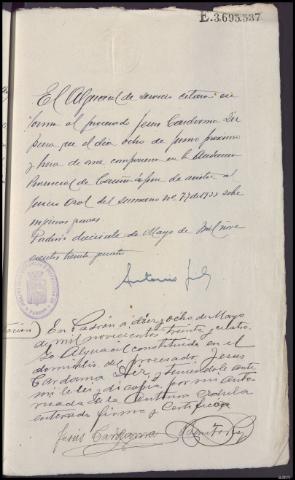 E.3.693.337
El Alguacil de servicio citará en
forma al procesado Jesus Cardama
para que el día ocho de Junio proximo
y hora de once comparezca en la Audiencia
Provincial de Coruña a fin de asistir a
Juicio Oral del sumario nº 77 de 1933 sobre
lesiones graves
Padrón diecisiete de Mayo de mil nove
cientos treinta y cuatro
Antonio
En Padrón a diez y ocho de Mayo
de mil novecientos treinta y cuatro.
Yo Alguacil constituido en el
domicilio del procesado Jesus
Cardama y teniendole ante
mi le leí y di copia por mi auto
rizada de la anterior cedula
enterado firma y Certifico
Jesus Cardama